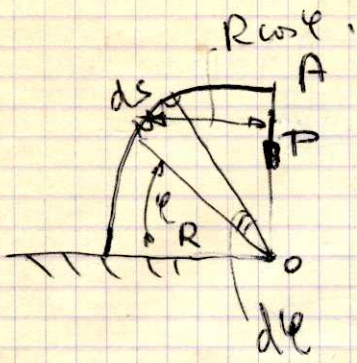 R cos φ
ds
A
P
φ
R
O
dφ